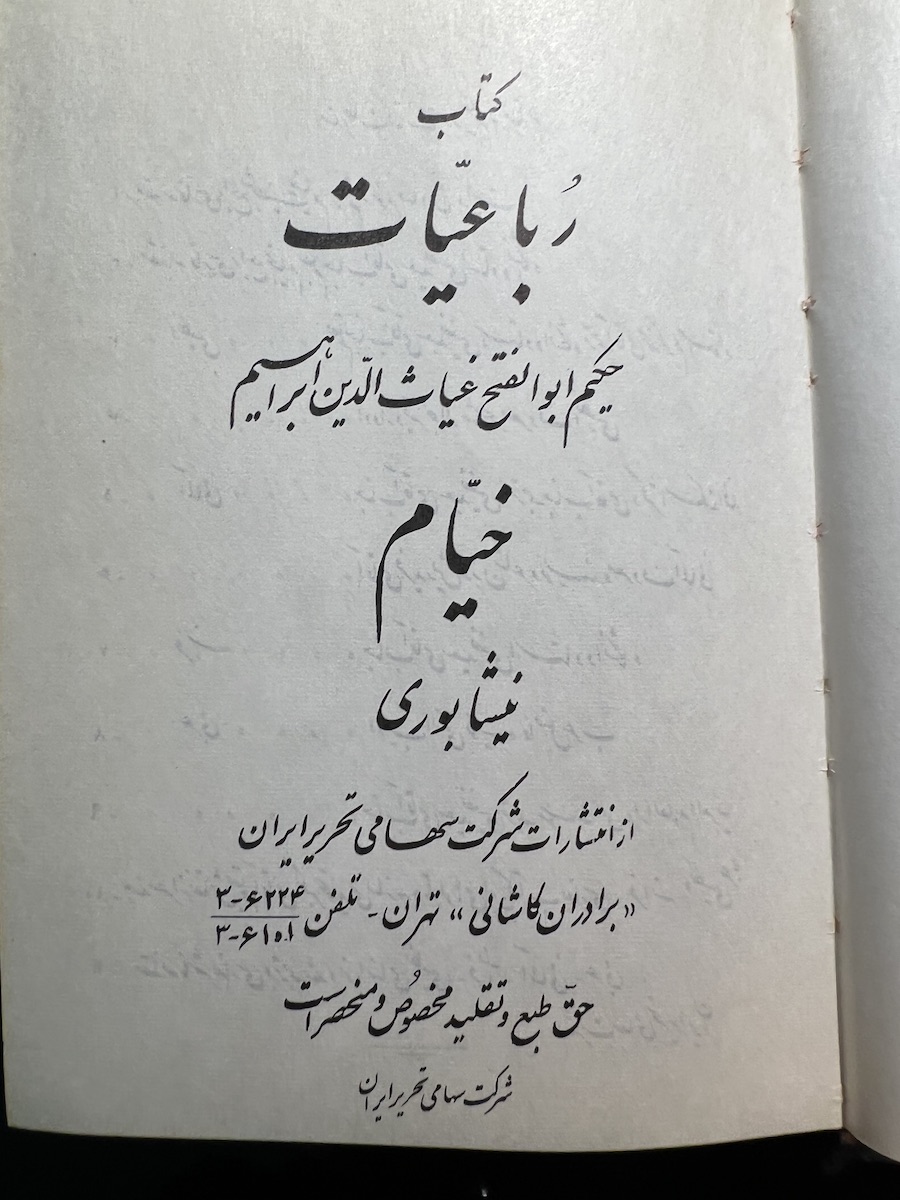 کتاب
رُباعیّات
حکیم ابوالفتح غیاث الدّین ابراهیم
خیّام
نیشابوری
از انتشارات شرکت سهامی تحریر ایران
«برادران کاشانی» تهران - تلفن ۶۲۲۴-۳
۶۱۰۱-۳
حقّ طبع و تقلید مخصُوص و منحصر است
شرکت سهامی تحریر ایران